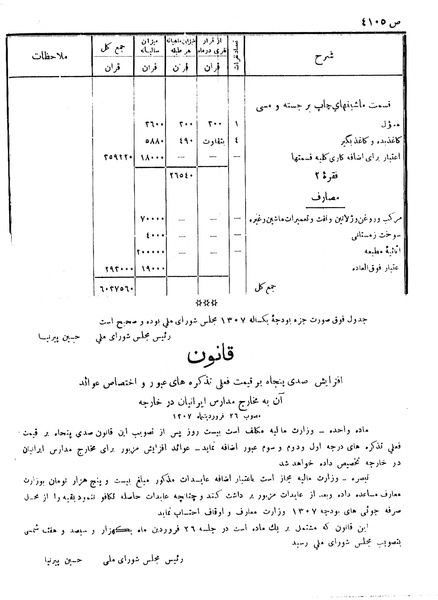 ص ۴۱۰۵
شرح تعداد نفرات از قرار نفری در ماه میزان ماهیانه هر طبقه میزان سالیانه جمع کل ملاحظات
قران قران قران قران
قسمت ماشینهای چاپ برجسته و مسی
مسؤل ۱ ۳۰۰ ۳۰۰ ۳۶۰۰
کاغذبده و کاغذبگیر ۴ بتفاوت ۴۹۰ ۵۸۸۰
اعتبار برای اضافه کاری کلیه قسمتها — — — ۱۸۰۰۰ ۳۵۹۲۲۰
۲۶۵۴۰
فقرهٔ ۲
مصارف
مرکب و روغن و ژلاتین و نفت و تعمیرات ماشین و غیره — — — ۷۰۰۰۰
سوخت زمستانی — — — ۴۰۰۰
اثاثیهٔ مطبعه — — — ۲۰۰۰۰۰
اعتبار فوق‌العاده — — — ۱۹۰۰۰ ۲۹۳۰۰۰
جمع کل ۶۰۳۷۵۶۰
***
جدول فوق صورت جزء بودجهٔ یکساله ۱۳۰۷ مجلس شورای ملی بوده و صحیح است
رئیس مجلس شورای ملی حسین پیرنیا
قانون
افزایش صدی پنجاه بر قیمت فعلی تذکره های عبور و اختصاص عوائد
آن به مخارج مدارس ایرانیان در خارجه
مصوب ۲۶ فروردینماه ۱۳۰۷
ماده واحده - وزارت مالیه مکلف است بیست روز پس از تصویب این قانون صدی پنجاه بر قیمت
فعلی تذکره های درجه اول ودوم و سوم عبور اضافه نماید - عوائد افزایش مزبور برای مخارج مدارس ایرانیان
در خارجه تخصیص داده خواهد شد
تبصره - وزارت مالیه مجاز است باعتبار اضافه عایدات مذکور مبلغ بیست و پنج هزار تومان بوزارت
معارف مساعده داده وبعد از عایدات مزبور بر داشت کنند و چنانچه عایدات حاصله تکافو ننمود بقیه را از محل
صرفه جوئی های بودجه ۱۳۰۷ وزارت معارف و اوقاف احتساب نماید
این قانون که مشتمل بر یك ماده است در جلسه ۲۶ فروردین ماه یکهزار و سیصد و هفت شمسی
بتصویب مجلس شورای ملی رسید
رئیس مجلس شورای ملی - حسین پیرنیا